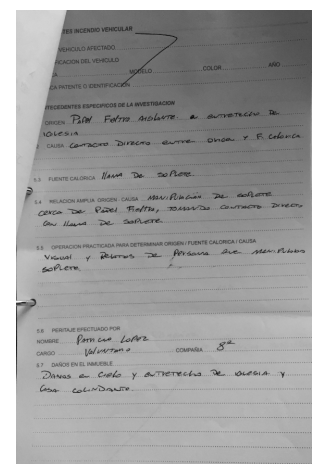 ES INCENDIO VEHICULAR
VEHICULO AFECTADO
ICACION DEL VEHÍCULO
A MODELO COLOR AÑO
CA PATENTE O IDENTIFICACION
TECEDENTES ESPECIFICOS DE LA INVESTIGACION
ORIGEN Papel Fieltro Aislante a entretecho De
iglesia
CAUSA Contacto Directo entre Origen y F. Calorica
5.3 FUENTE CALORICA llama De soplete
5.4 RELACION AMPLIA ORIGEN CAUSA Manipulación De soplete
cerca De Papel Fieltro, tomando contacto Directo
con llama De soplete.
5.5 OPERACION PRACTICADA PARA DETERMINAR ORIGEN / FUENTE CALORICA / CAUSA
Visual y Relatos De Persona que Manipulaba
soplete
5.6 PERITAJE EFECTUADO POR
NOMBRE Patricio Lopez
CARGO Voluntario COMPAÑIA 8ª
5.7 DAÑOS EN EL INMUEBLE
Daños a Cielo y entretecho De iglesia y
Casa colindante